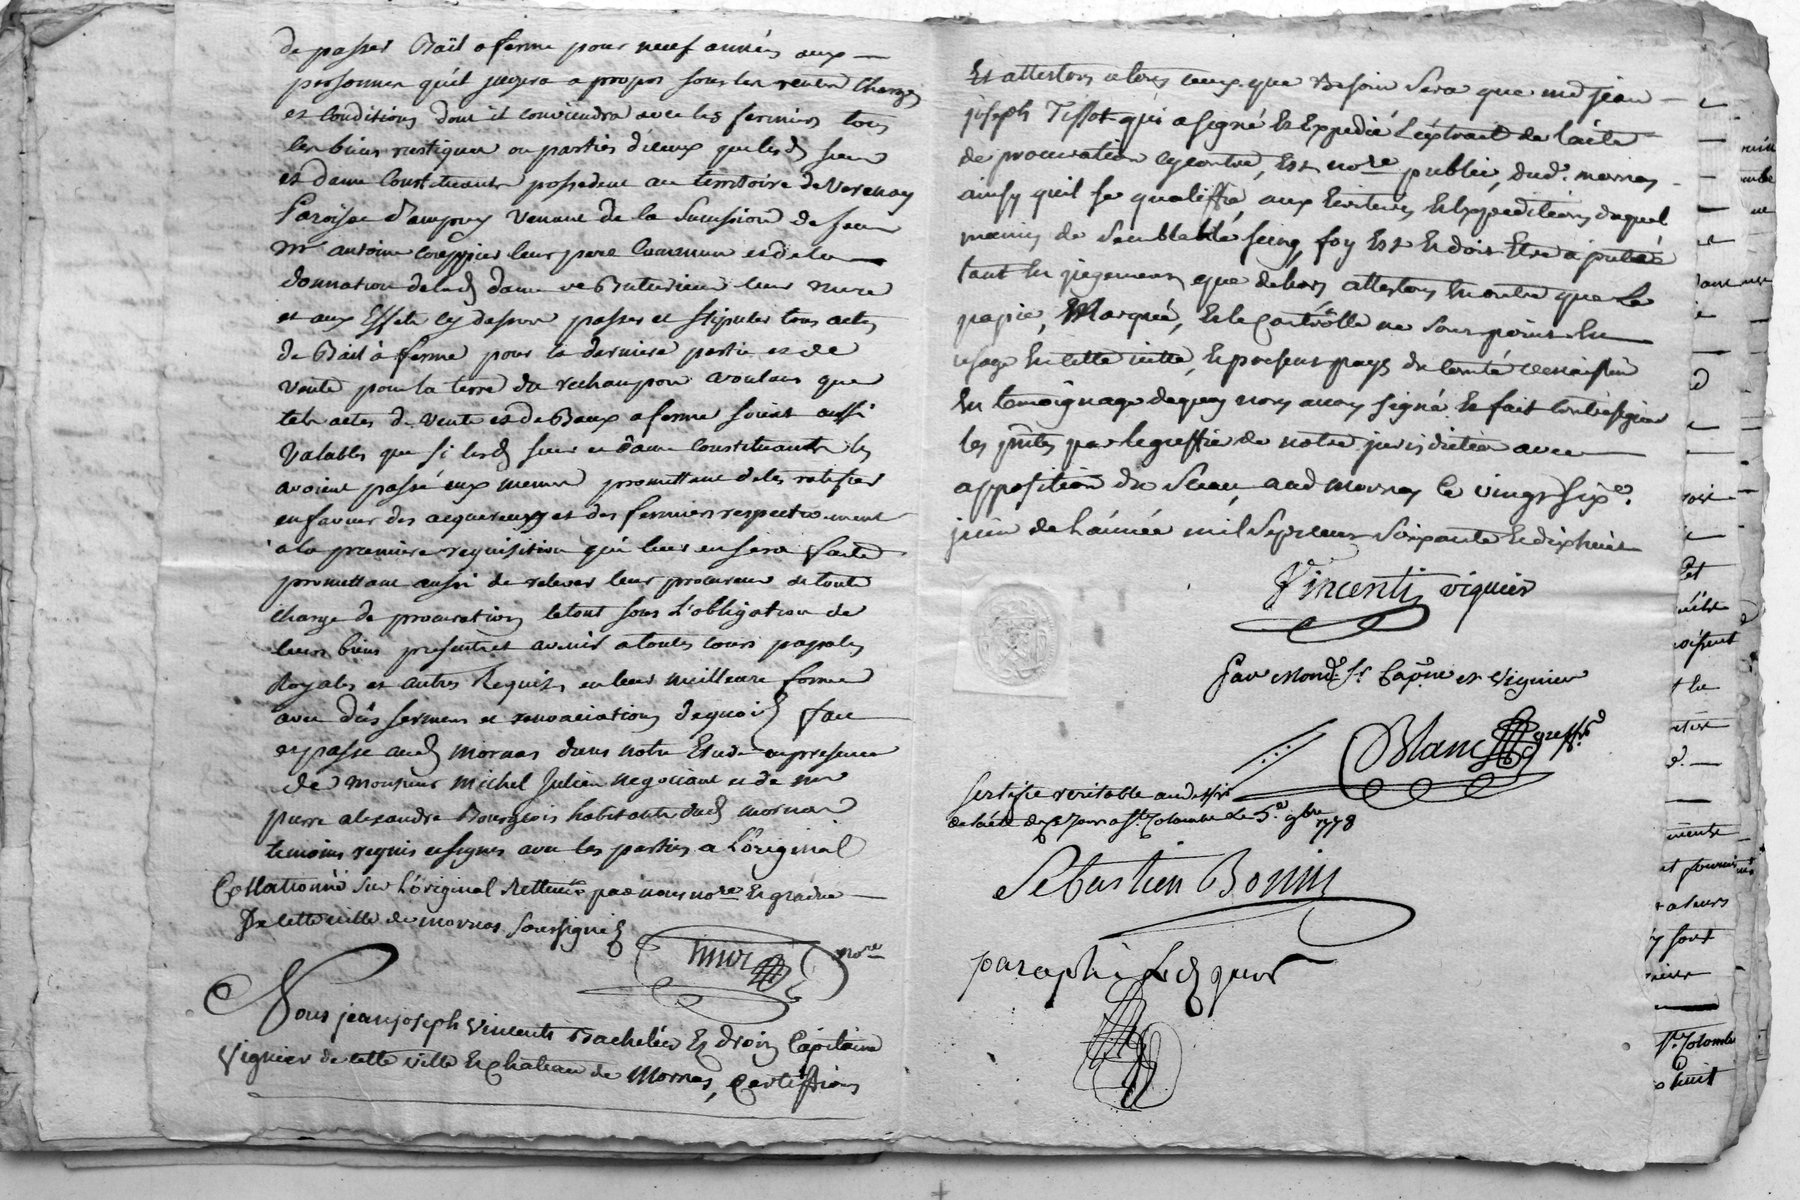 de passer Bail a ferme pour neuf années aux
personnes qu'il jugera a propos sous les rentes Charges
et Conditions dont il conviendra avec les fermiers tous
les biens rustiques ou parties d'iceux que lesd sieur
et dame Constituants possedent au territoire de Verenay
Paroisse d'ampuy venant de la Succession de feu
Mr antoine leur pere Commun et de la
donnation de lad dame ve leur mere
et aux Effets cy dessus passer et stipuler tous actes
de Bail à ferme pour la derniere partie et de
vente pour la terre du voulans que
tels actes de vente et de Baux a ferme soient aussi
valables que si lesd sieur et dame constituants les
avoient passé eux memes promettant de les ratifier
en faveur des acquereurs et des fermiers respectivement
a la premiere requisition qui leur en sera faite
promettant aussi de relever leur procureur de toute
charge de procuration le tout sous L'obligation de
leurs biens presents et avenir a toutes cours papales
Royales et autres Requises en leur meilleure forme
avec dûs sermens et renonciations dequoi fait
et passé aud mornas dans notre Etude en presence
de monsieur michel Julien negociant et de mr
pierre alexandre Bourgeois habitants dud mornas
temoins requis et signes avec les parties a L'original
Collationné sur L'original par nous nore Et greffier
De cette ville de mornas soussigné
nore
Nous jean joseph vincenti Bachelier Ez droits Capitaine
Viguier de cette ville Et Chateau de Mornas, Certiffions
Et attestons a tous ceux que Besoin Sera que me jean
joseph Tissot qui a signé Et Expedié L'extrait de l'acte
de procuration cy contre, Est nore public, dud. mornas
ainsy qu'il se qualiffie aux Ecritures Et Expeditions duquel
meunis de semblable seing foy Est Et doit Etre ajoutée
tant En jugement que dehors attestons En outre que Le
papier Marqué, Et le Controlle ne sont point En
usage En cette ville, Et present pays du Comté venaissin
En temoignage dequoy nous avons signé Et fait Contresigner
les pntes par le greffier de notre jurisdiction avec
apposition du Sceau aud mornas le vingt six
juin de L'année mil Sept cens Soixante Et dix huit
Vincenti viguier
Par mond. Sr Capne et viguier
Blanc greff
Certifié veritable au desir
de l'acte de ce Jour a Ste. Colombe Le 5 9bre 1778
Sebastien Bonin
paraphé